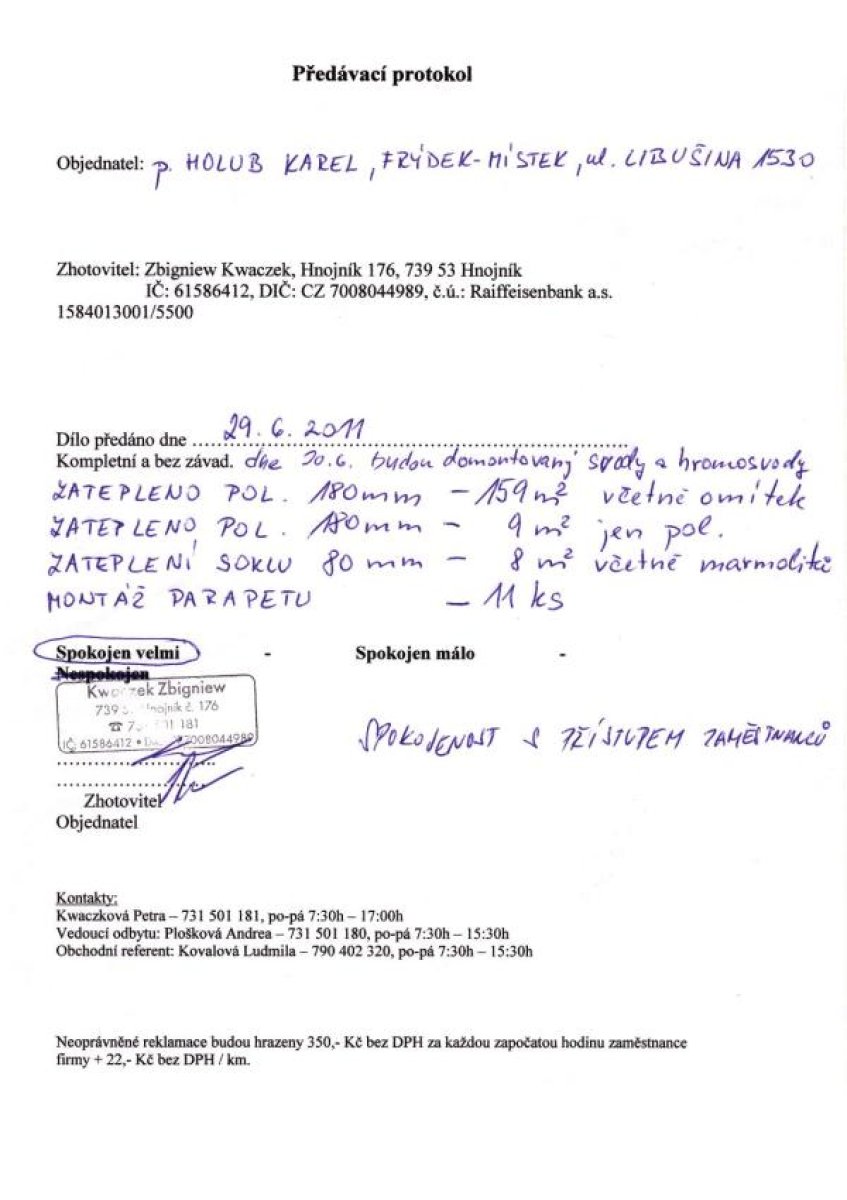 Předávací protokol
Objednatel: p. HOLUB KAREL, FRÝDEK-MÍSTEK, ul. LIBUŠINA 1530
Zhotovitel: Zbigniew Kwaczek, Hnojník 176, 739 53 Hnojník
IČ: 61586412, DIČ: CZ 7008044989, č.ú.: Raiffeisenbank a.s.
1584013001/5500
Dílo předáno dne 29. 6. 2011
Kompletní a bez závad. dne 30.6. budou domontovaný svody a hromosvody
ZATEPLENO POL. 180mm – 159 m² včetně omítek
ZATEPLENO POL. 180mm – 9 m² jen pol.
ZATEPLENÍ SOKLU 80 mm – 8 m² včetně marmolitě
MONTÁŽ PARAPETU – 11 ks
Spokojen velmi - Spokojen málo -
Nespokojen
Zbigniew
739 Hnojník č. 176
181
IČ 61586412 • 7008044989
SPOKOJENOST S PŘÍSTUPEM ZAMĚSTNANCŮ
Zhotovitel
Objednatel
Kontakty:
Kwaczková Petra – 731 501 181, po-pá 7:30h – 17:00h
Vedoucí odbytu: Plošková Andrea – 731 501 180, po-pá 7:30h – 15:30h
Obchodní referent: Kovalová Ludmila – 790 402 320, po-pá 7:30h – 15:30h
Neoprávněné reklamace budou hrazeny 350,- Kč bez DPH za každou započatou hodinu zaměstnance
firmy + 22,- Kč bez DPH / km.